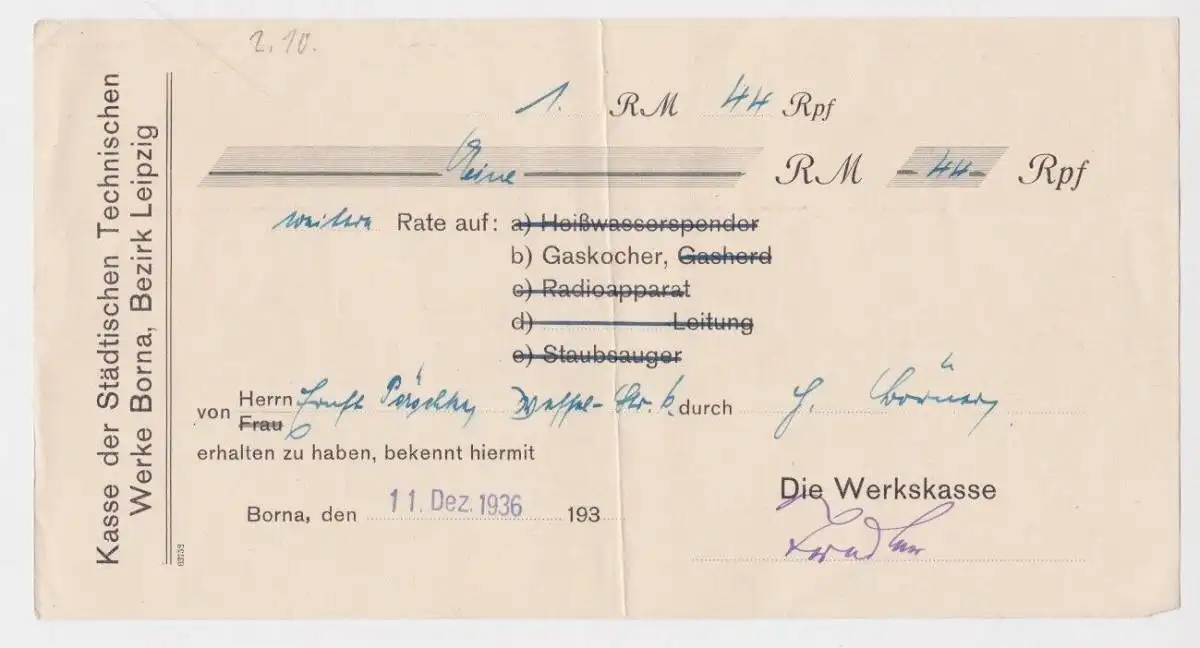 2.10.
Kasse der Städtischen Technischen
Werke Borna, Bezirk Leipzig
1. RM 44 Rpf
Eine RM 44 Rpf
weitere Rate auf: a) Heißwasserspender
b) Gaskocher, Gasherd
c) Radioapparat
d) Leitung
e) Staubsauger
von Herrn Ernst Str. 6. durch H. Börner
Frau
erhalten zu haben, bekennt hiermit
Die Werkskasse
Borna, den 11. Dez. 1936 193